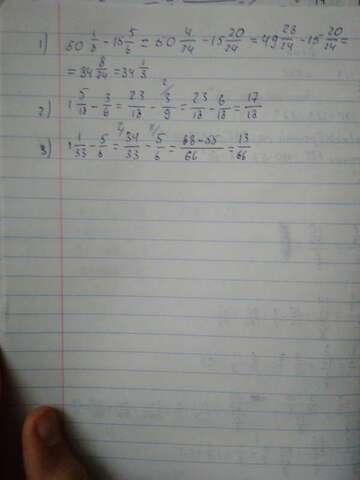 1) 50 1/6 - 15 5/6 = 50 4/24 - 15 20/24 = 49 28/24 - 15 20/24 =
= 34 8/24 = 34 1/3
2) 1 5/18 - 3/6 = 23/18 - 3/9 = 23/18 - 6/18 = 17/18
3) 1 1/33 - 5/6 = 34/33 - 5/6 = 68-55/66 = 13/66